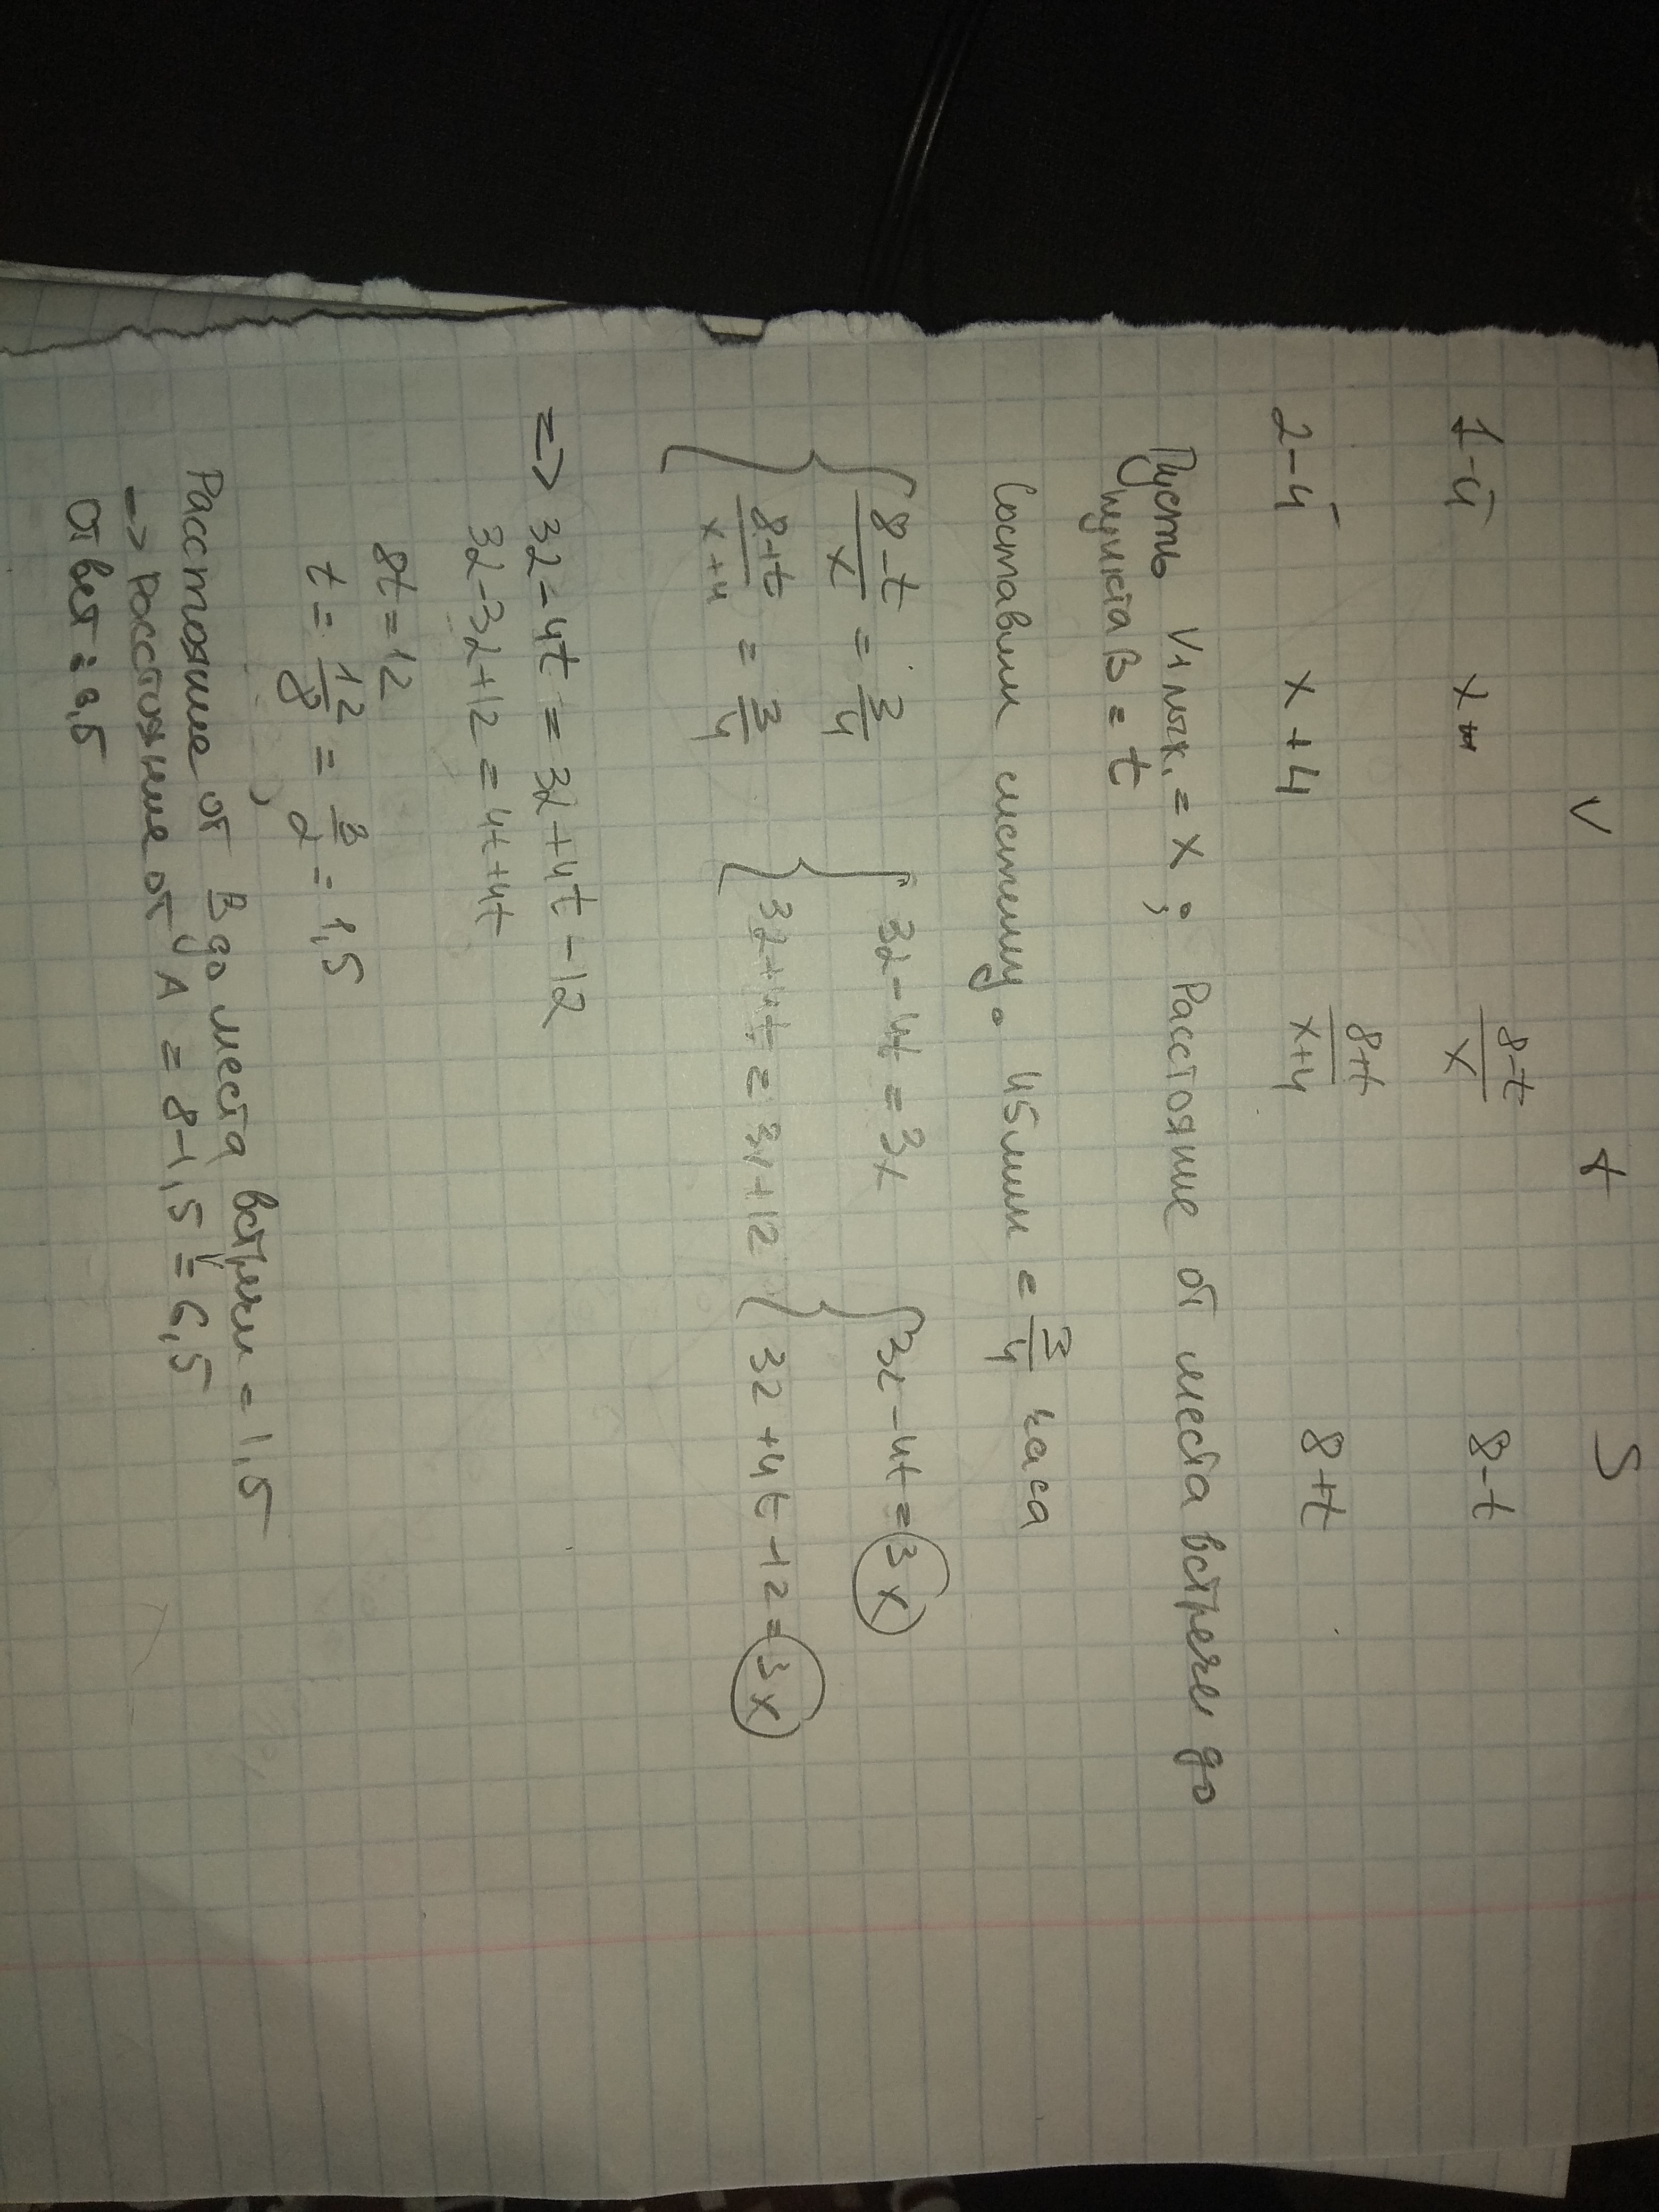 V t S
1-й x 8-t/x 8-t
2-й x+4 8+t/x+4 8+t
Пусть V1 лыж. = x ; Расстояние от места встречи до
пункта B = t
Составим систему. 45мин = 3/4 часа
{ 8-t/x = 3/4 { 32-4t = 3x { 32-4t = 3x
{ 8+t/x+4 = 3/4 { 32+4t = 3x+12 { 32+4t-12 = 3x
=> 32-4t = 32+4t-12
32-32+12 = 4t+4t
8t = 12
t = 12/8 = 3/2 = 1,5
Расстояние от B до места встречи = 1,5
-> расстояние от A = 8-1,5 = 6,5
Ответ: